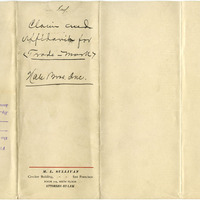 Claim and
Affidavit for
Trade-Mark
Hale Bros Inc.
M. L. SULLIVAN
Crocker Building, San Francisco
ATTORNEY AT LAW